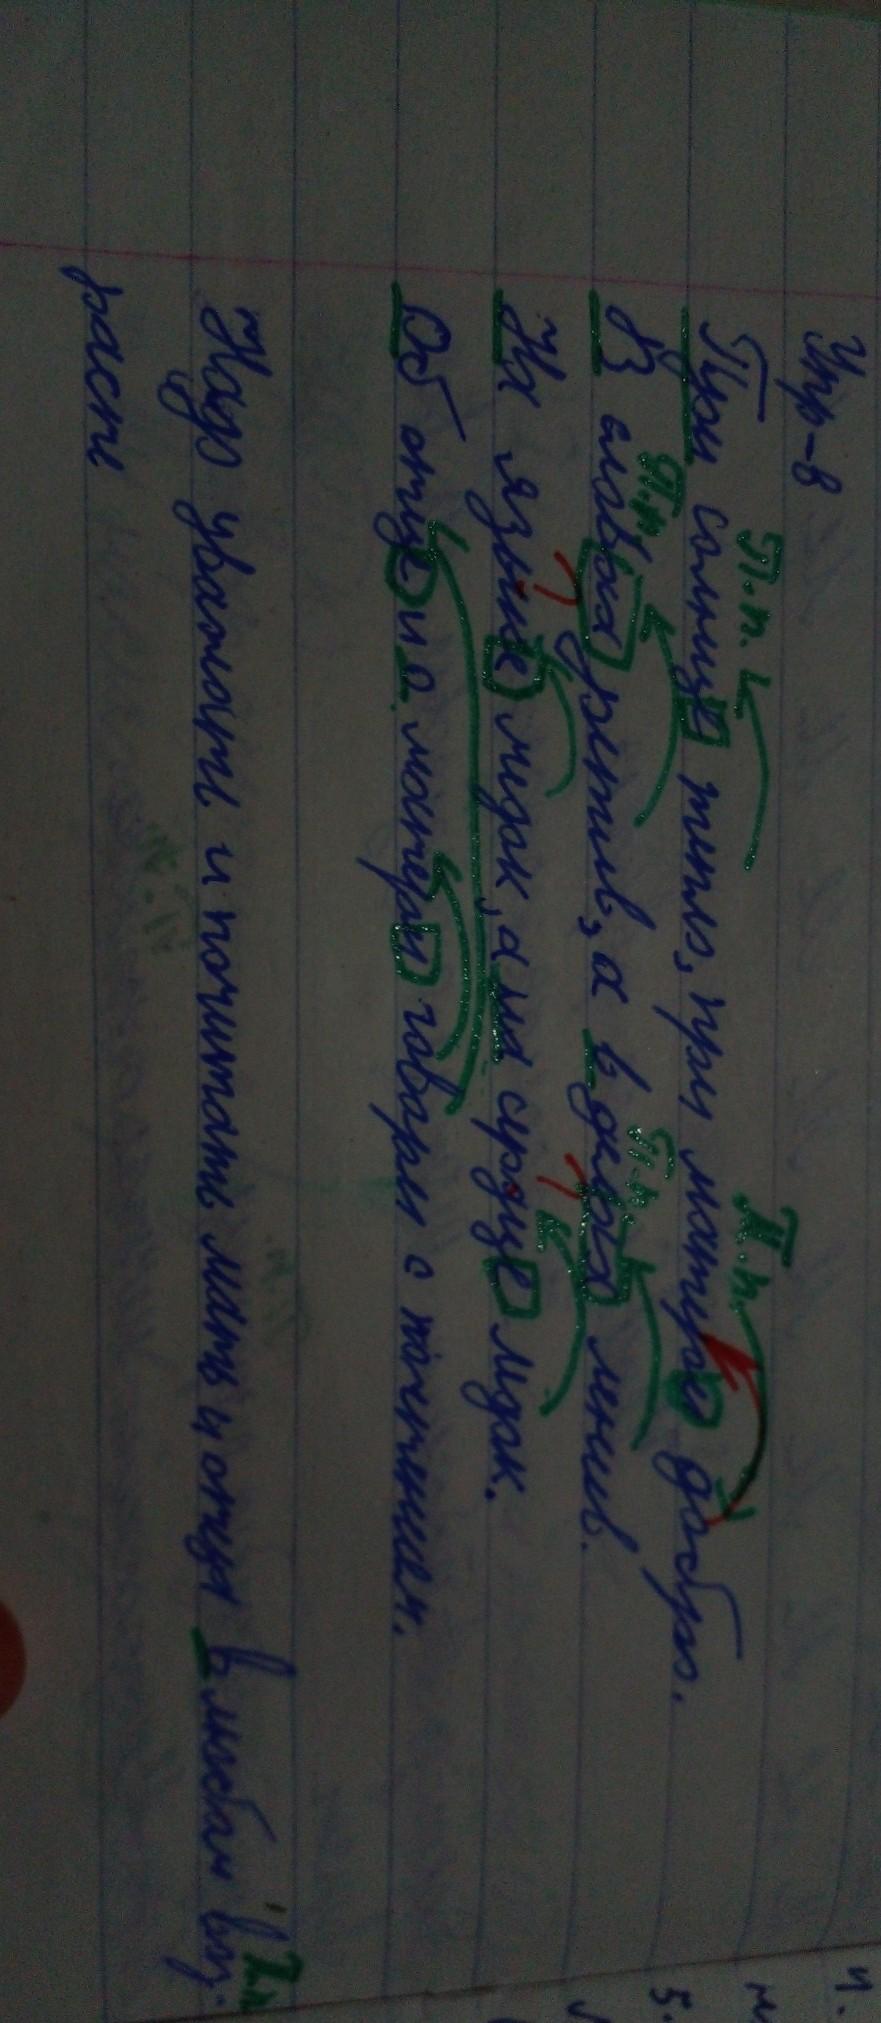 Упр-8
При солнце тепло, при матери добро.
В словах ретив, а в делах ленив.
На языке медок, а на сердце ледок.
Об отце и о матери говори с почтением.
Надо уважать и почитать мать и отца в любом воз-
расте
П.п. П.п.
П.п. П.п.
П.п